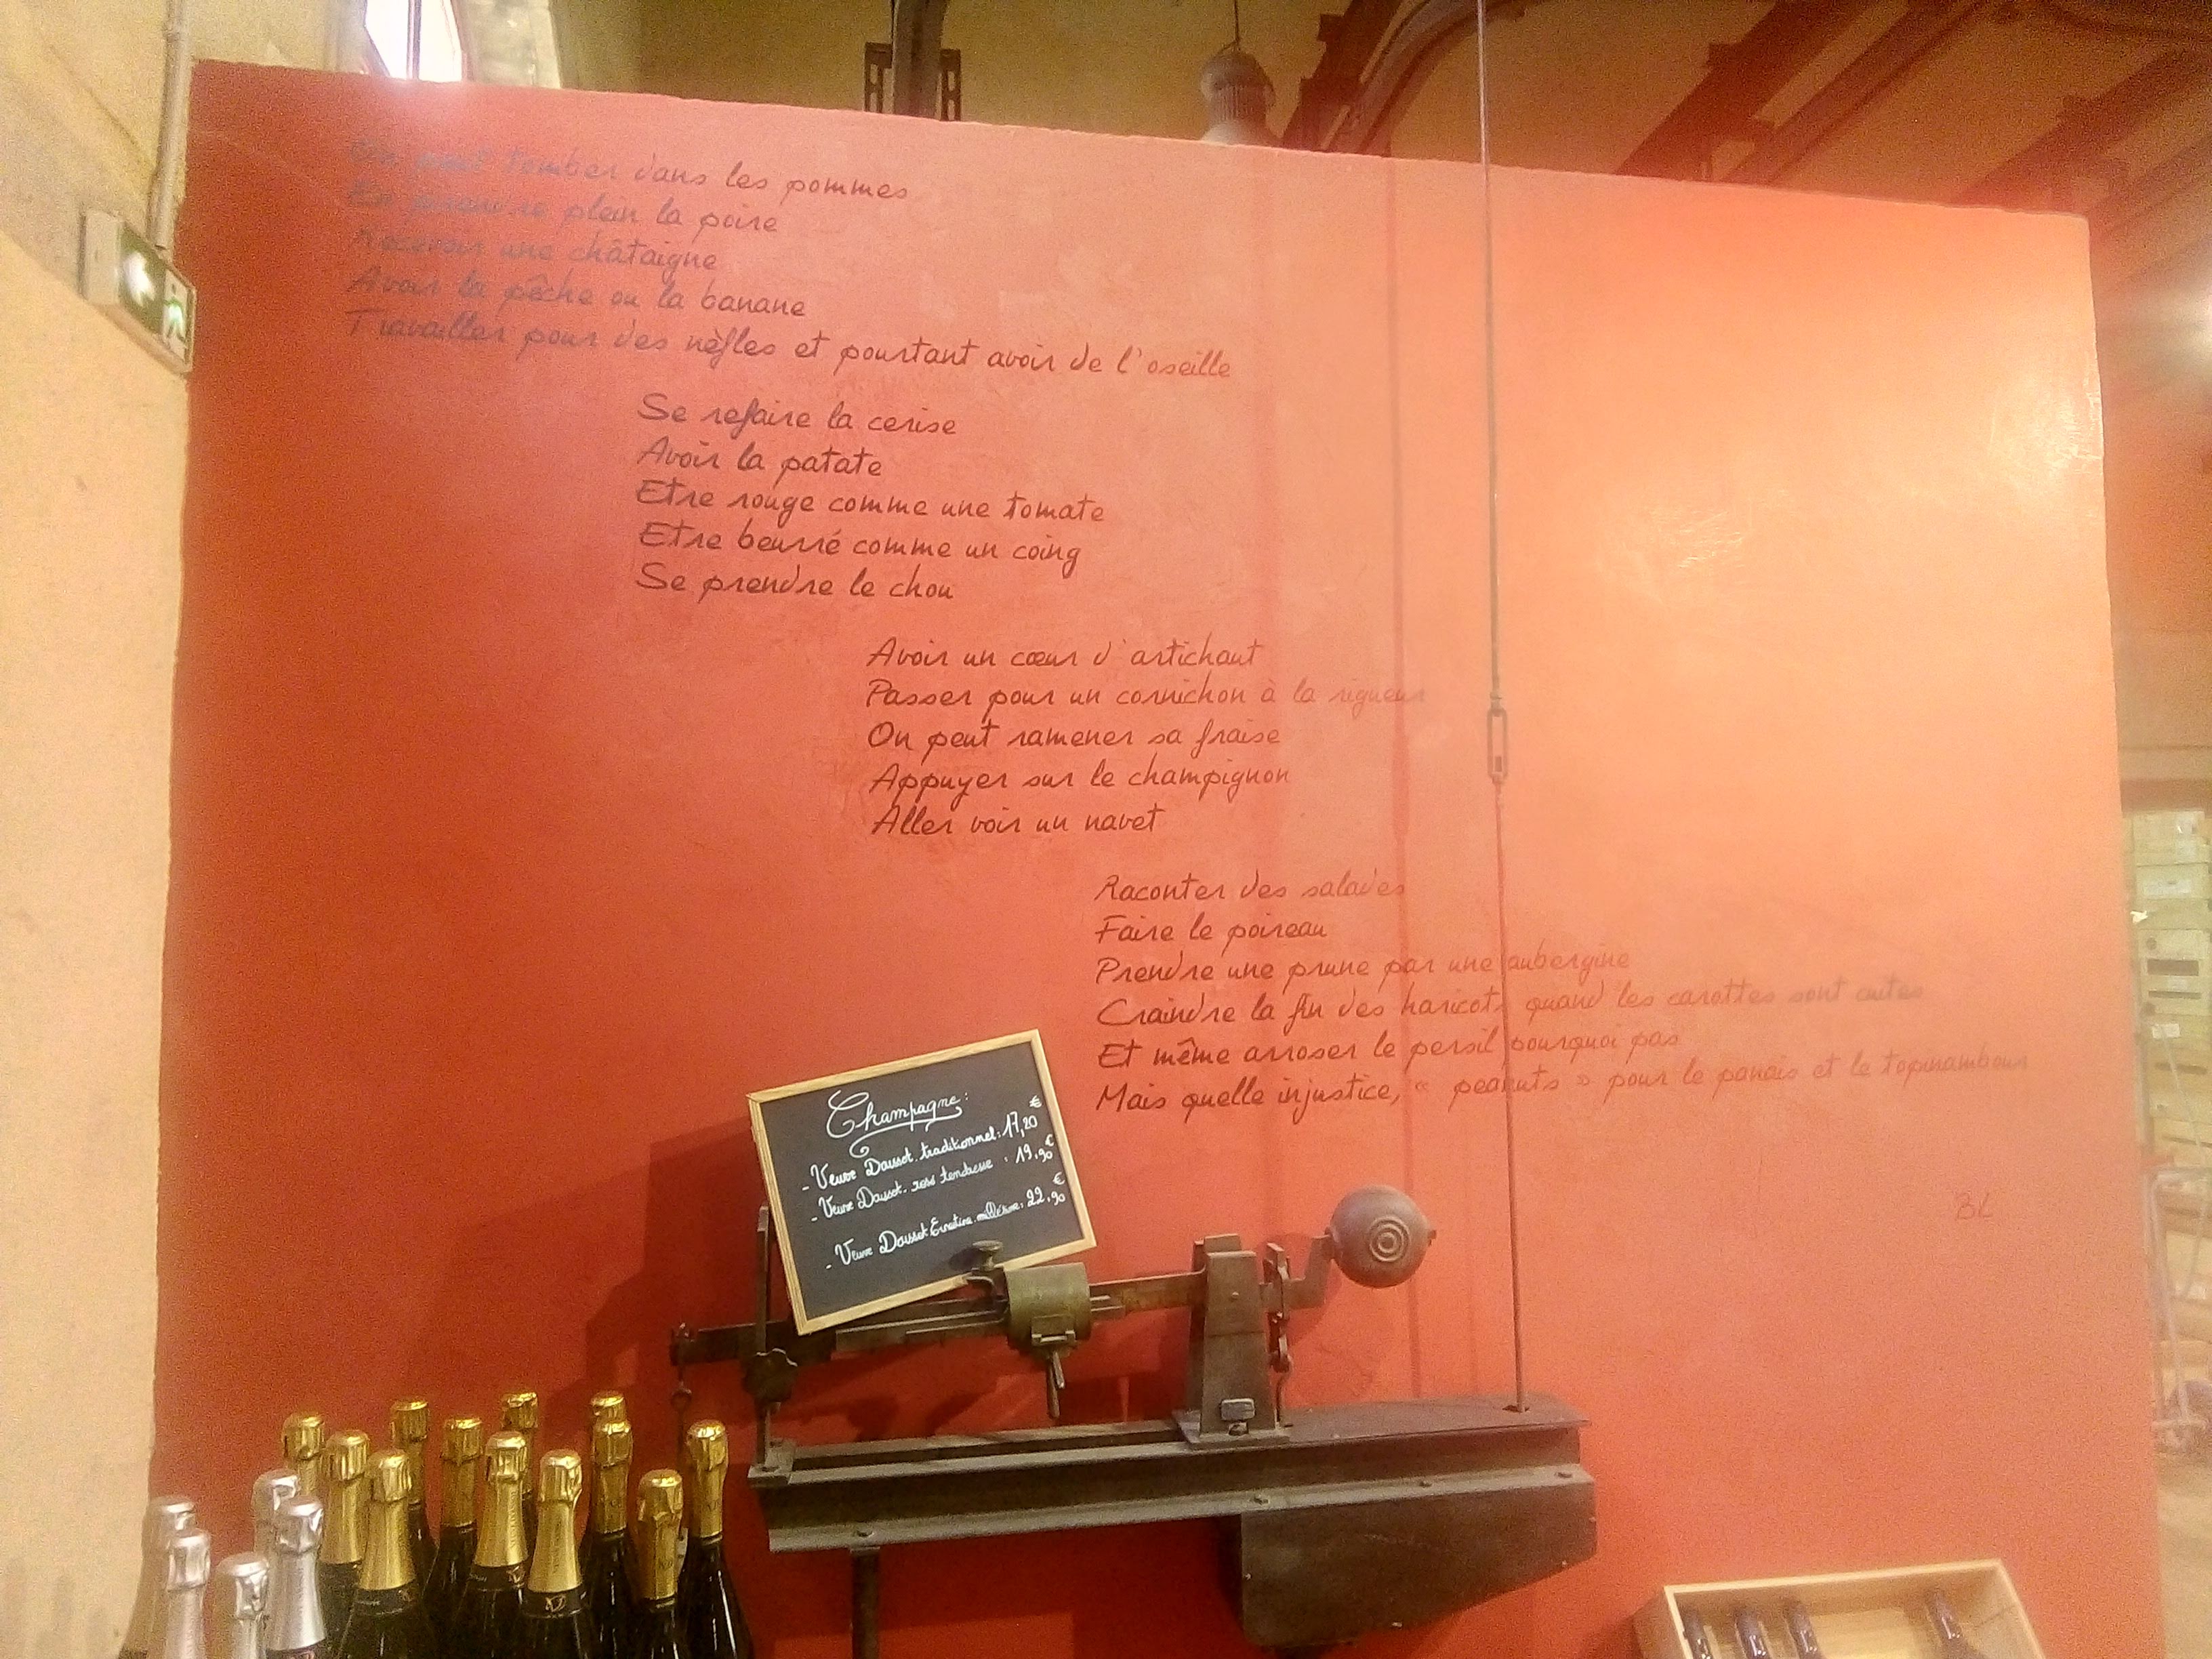 On peut tomber dans les pommes
En prendre plein la poire
Recevoir une châtaigne
Avoir la pêche ou la banane
Travailler pour des nèfles et pourtant avoir de l'oseille
Se refaire la cerise
Avoir la patate
Etre rouge comme une tomate
Etre beurré comme un coing
Se prendre le chou
Avoir un cœur d'artichaut
Passer pour un cornichon à la rigueur
On peut ramener sa fraise
Appuyer sur le champignon
Aller voir un navet
Raconter des salades
Faire le poireau
Prendre une prune par une aubergine
Craindre la fin des haricots quand les carottes sont cuites
Et même arroser le persil pourquoi pas
Mais quelle injustice, « peanuts » pour le panais et le topinambour
BL
Champagne:
- Veuve Doussot traditionnel: 17,20 €
- Veuve Doussot rosé tendresse : 19,90 €
- Veuve Doussot Ernestine millésime: 22,90 €